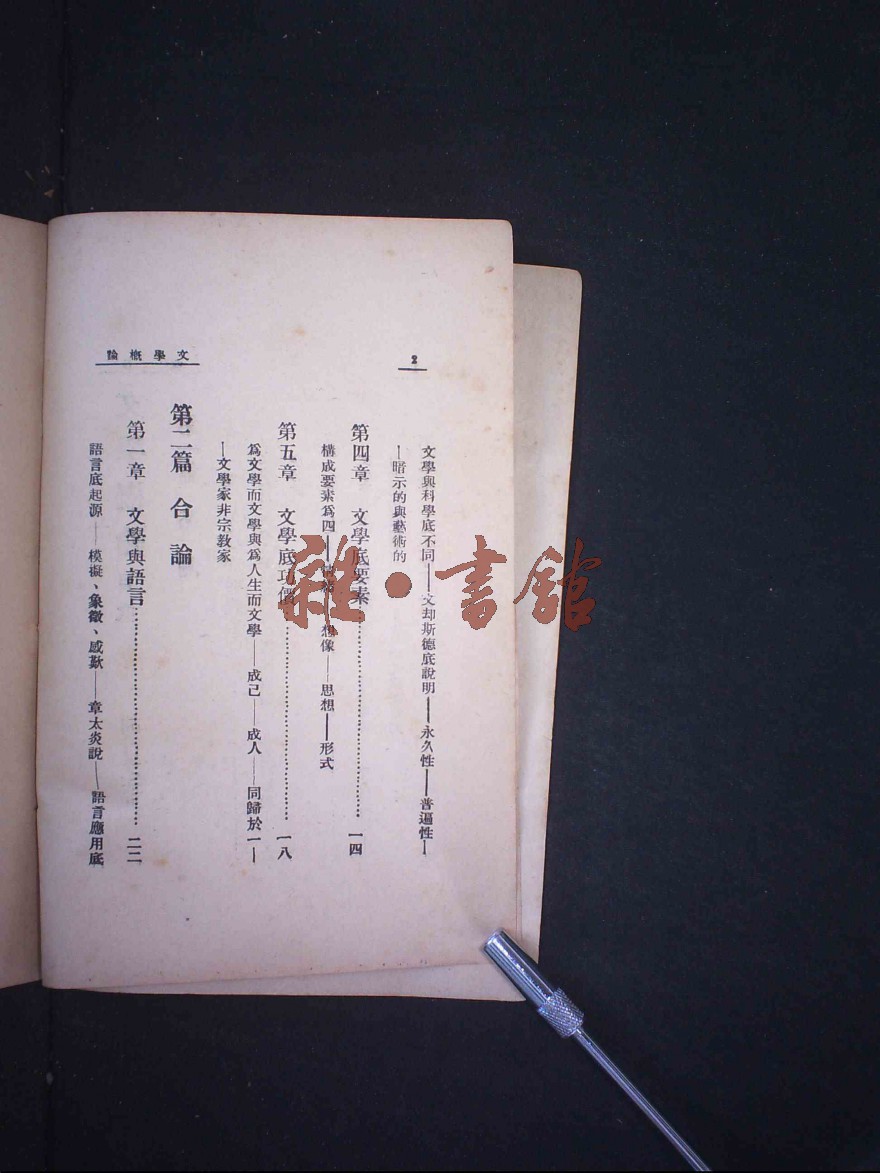 文學概論
2
文學與科學底不同——文却斯德底說明——永久性——普遍性—
—暗示的與藝術的
第四章 文學底要素……一四
構成要素爲四——想像——思想——形式
第五章 文學底功價……一八
爲文學而文學與爲人生而文學——成己——成人——同歸於一—
—文學家非宗教家
第二篇 合論
第一章 文學與語言……二二
語言底起源——模擬、象徵、感歎——章太炎說——語言應用底
雜·書館